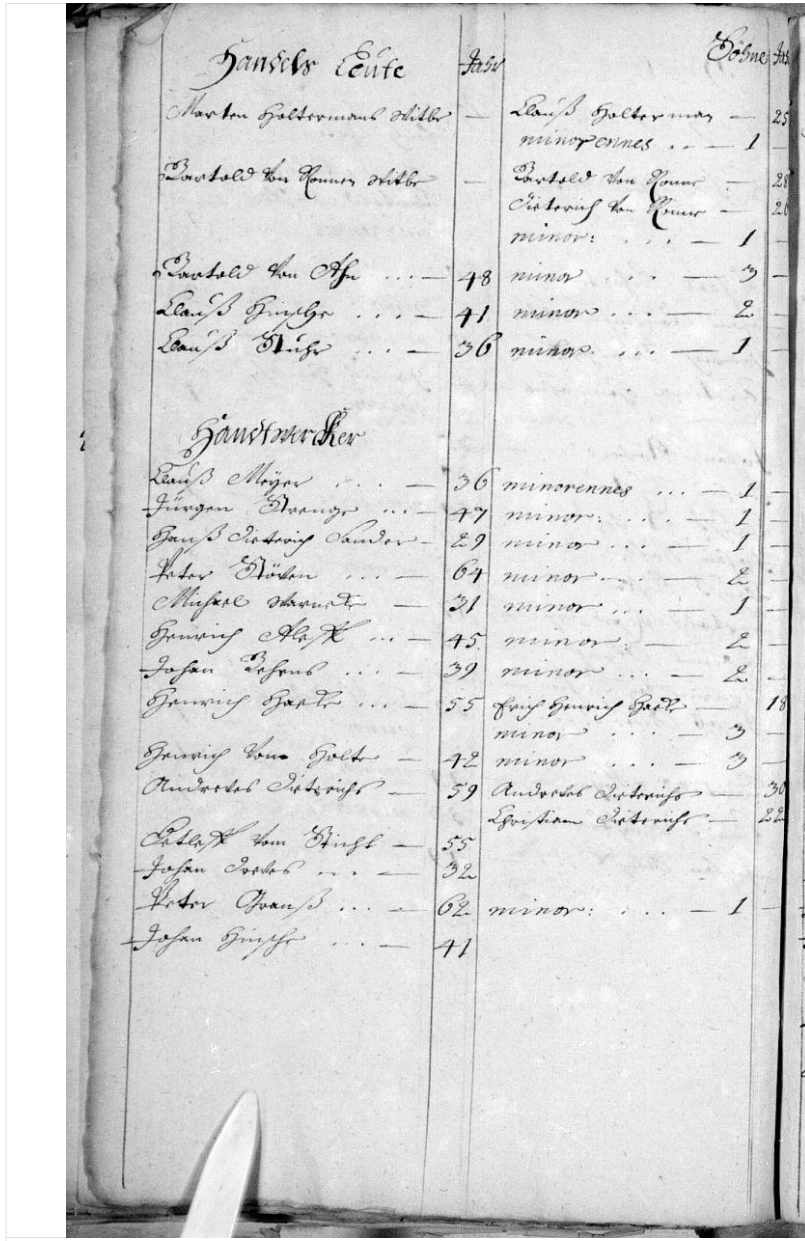 Handels Leute Jahr Söhne Jah
Marten Holtermans Witbe — Clauß Holterman — 25
minorennes .. — 1 —
Bartold Von Ronnen Witbe — Bartold Von Ronne — 28
Dieterich Von Ronne — 26
minor: . . . — 1 —
Bartold Von Ahn ... — 48 minor . . . — 3 —
Clauß Hinsche . . . — 41 minor . . . — 2 —
Clauß Stühr . . . — 36 minor. . . . — 1 —
Handtwercker
Clauß Meyer . . . — 36 minorennes ... — 1 —
Jürgen Strenge ... — 47 minor: . . . — 1 —
Hanß Dieterich Sander — 29 minor . . . — 1 —
Peter Stöven ... — 64 minor — 2 —
Michael Warneke — 31 minor ... — 1 —
Henrich Aleff ... — 45 minor . — 2 —
Johan Behrens ... — 39 minor ... — 2 —
Henrich Haeke ... — 55 Erich Henrich Haeke — 18
minor . . . — 3 —
Henrich Vom Holte — 42 minor . . . — 3 —
Andreves Dieterichs — 59 Andreves Dieterichs — 30
Christian Dieterichs — 22
Detleff Vom Sticht — 55
Johan Dreves ... — 32
Peter Granß ... — 62 minor: . . . — 1 —
Johan Hinsche ... — 41